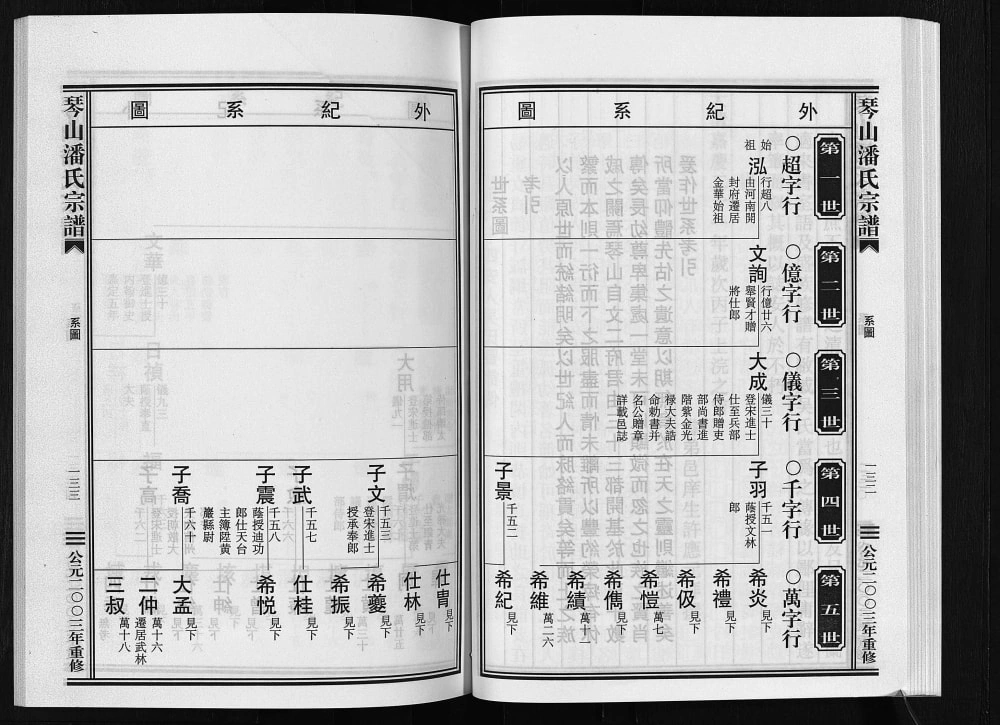 琴山潘氏宗譜
系圖
一三二
公元二〇〇三年重修
外紀系圖
第一世
〇超字行
始祖
泓
行超八
由河南開
封府遷居
金華始祖
第二世
〇億字行
文詢
行億廿六
舉賢才贈
將仕郎
第三世
〇儀字行
大成
儀三十
登宋進士
仕至兵部
侍郎贈吏
部尚書進
階紫金光
祿大夫誥
命勅書并
名公贈章
詳載邑誌
第四世
〇千字行
子羽
千五一
蔭授文林
郎
子景
千五二
第五世
〇萬字行
希炎
見下
希禮
見下
希伋
見下
希愷
萬七
希儁
見下
希績
萬十一
希維
萬二六
希紀
見下
外紀系圖
子文
千五三
登宋進士
授承奉郎
子武
千五七
子震
千五八
蔭授迪功
郎仕天台
主簿陞黃
巖縣尉
子喬
千六十
仕胄
見下
仕林
見下
希夔
見下
希振
見下
仕桂
見下
希悅
見下
大孟
見下
二仲
萬十六
遷居武林
三叔
萬十八
琴山潘氏宗譜
系圖
一三三
公元二〇〇三年重修